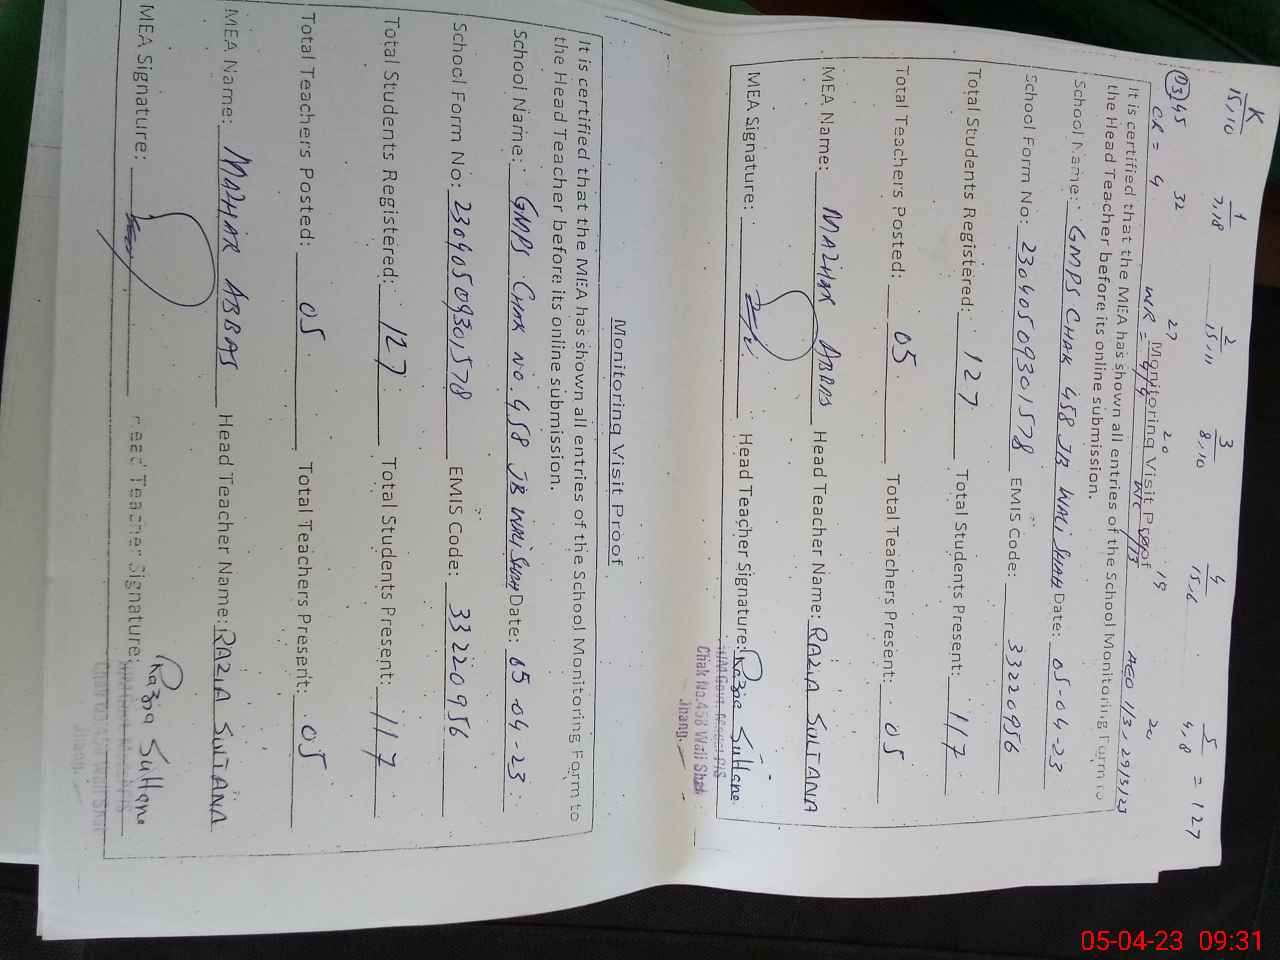 K 1 2 3 4 5
15,10 7,18 15,11 8,10 15,6 4,8 = 127
(03) 45 32 27 20 19 20
CR = 4 WR = 4/4 AEO 1/3, 29/3/23
Monitoring Visit Proof
It is certified that the MEA has shown all entries of the School Monitoring Form to
the Head Teacher before its online submission.
School Name: GMPS CHAK 458 JB WALI SHAH Date: 05-04-23
School Form No: 23040509301578 EMIS Code: 33220956
Total Students Registered: 127 Total Students Present: 117
Total Teachers Posted: 05 Total Teachers Present: 05
MEA Name: MAZHAR ABBAS Head Teacher Name: RAZIA SULTANA
MEA Signature: Head Teacher Signature: Razia Sultana
H/M Govt. Model P/S
Chak No.458 Wali Shah
Jhang.
Monitoring Visit Proof
It is certified that the MEA has shown all entries of the School Monitoring Form to
the Head Teacher before its online submission.
School Name: GMPS CHAK NO.458 JB WALI SHAH Date: 05-04-23
School Form No: 23040509301578 EMIS Code: 33220956
Total Students Registered: 127 Total Students Present: 117
Total Teachers Posted: 05 Total Teachers Present: 05
MEA Name: MAZHAR ABBAS Head Teacher Name: RAZIA SULTANA
MEA Signature: Head Teacher Signature: Razia Sultana
Chak No.458 Wali Shah
Jhang.
05-04-23 09:31